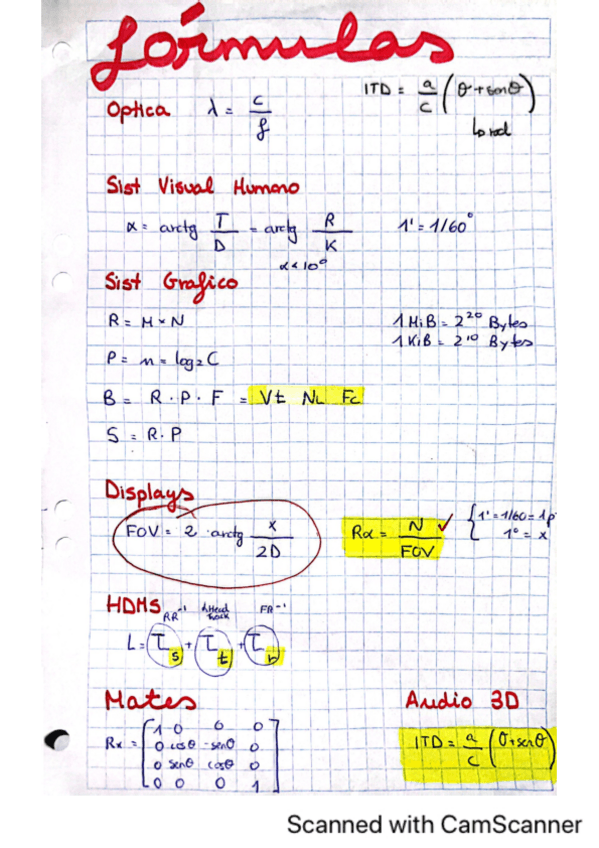 fórmulas
ITD = a/c (θ + senθ)
↳ rad
Optica λ = c/f
Sist Visual Humano
α = arctg T/D = arctg R/K 1' = 1/60°
α < 10°
Sist Grafico
R = M × N 1 MiB = 2²⁰ Bytes
1 KiB = 2¹⁰ Bytes
P = n = log₂C
B = R · P · F = Vt NL Fc
S = R · P
Displays
FOV = 2 · arctg x/2D Rα = N/FOV ✓ { 1' = 1/60 = 1p
1° = x
HDMS
RR⁻¹ Head Track FR⁻¹
L = τs + τt + τr
Mates Audio 3D
Rx = [1 0 0 0 ITD = a/c (θ + senθ)
0 cosθ -senθ 0
0 senθ cosθ 0
0 0 0 1]
Scanned with CamScanner